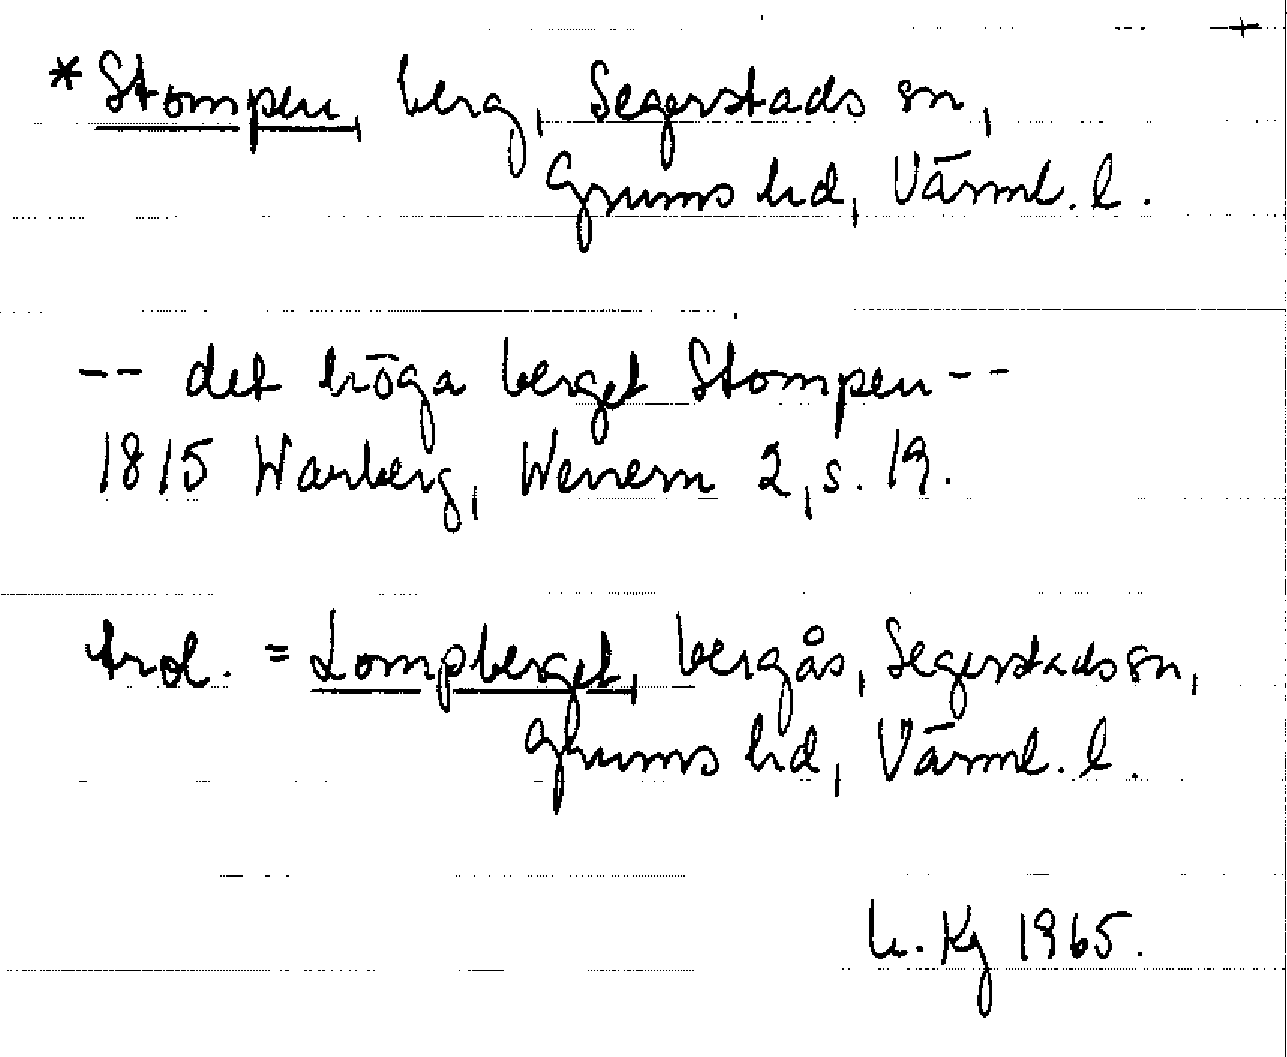 * Stompen, berg, Segerstads sn,
Grums hd, Värml. l.
-- det höga berget Stompen --
1815 Warberg, Wenern 2, s. 19.
trol. = Lompberget, bergås, Segerstads sn,
Grums hd, Värml. l.
Kg 1965.